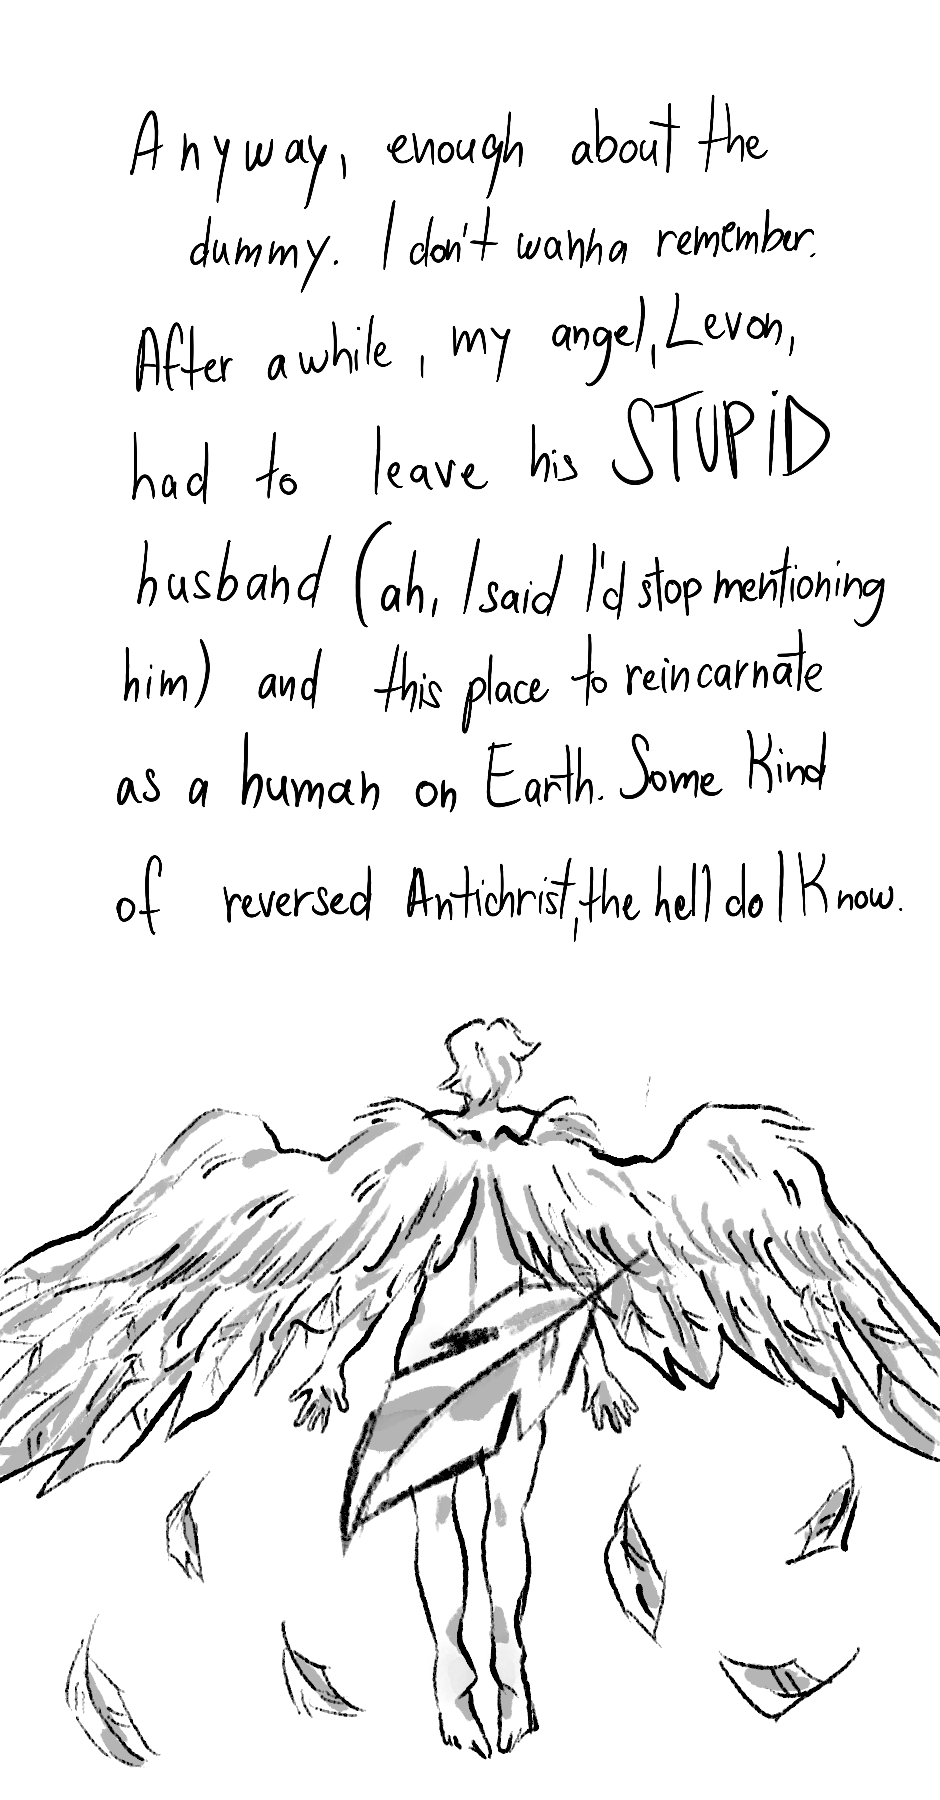 Anyway, enough about the
dummy. I don't wanna remember.
After awhile, my angel, Levon,
had to leave his STUPiD
husband (ah, I said I'd stop mentioning
him) and this place to reincarnate
as a human on Earth. Some Kind
of reversed Antichrist, the hell do I Know.